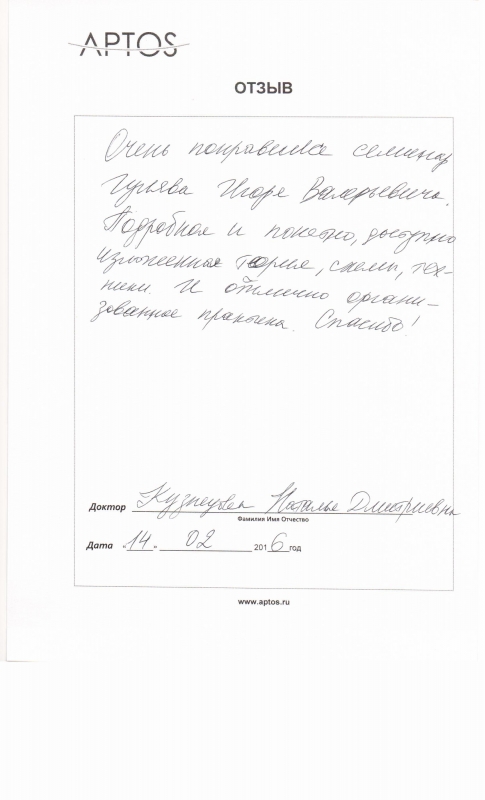 APTOS
ОТЗЫВ
Очень понравился семинар
Гурьева Игоря Валерьевича.
Подробная и понятно, доступно
изложенная теория, схемы, тех-
ники. И отлично органи-
зованное практика. Спасибо!
Доктор Кузнецова Наталья Дмитриевна
Фамилия Имя Отчество
Дата «14» 02 2016 год
www.aptos.ru